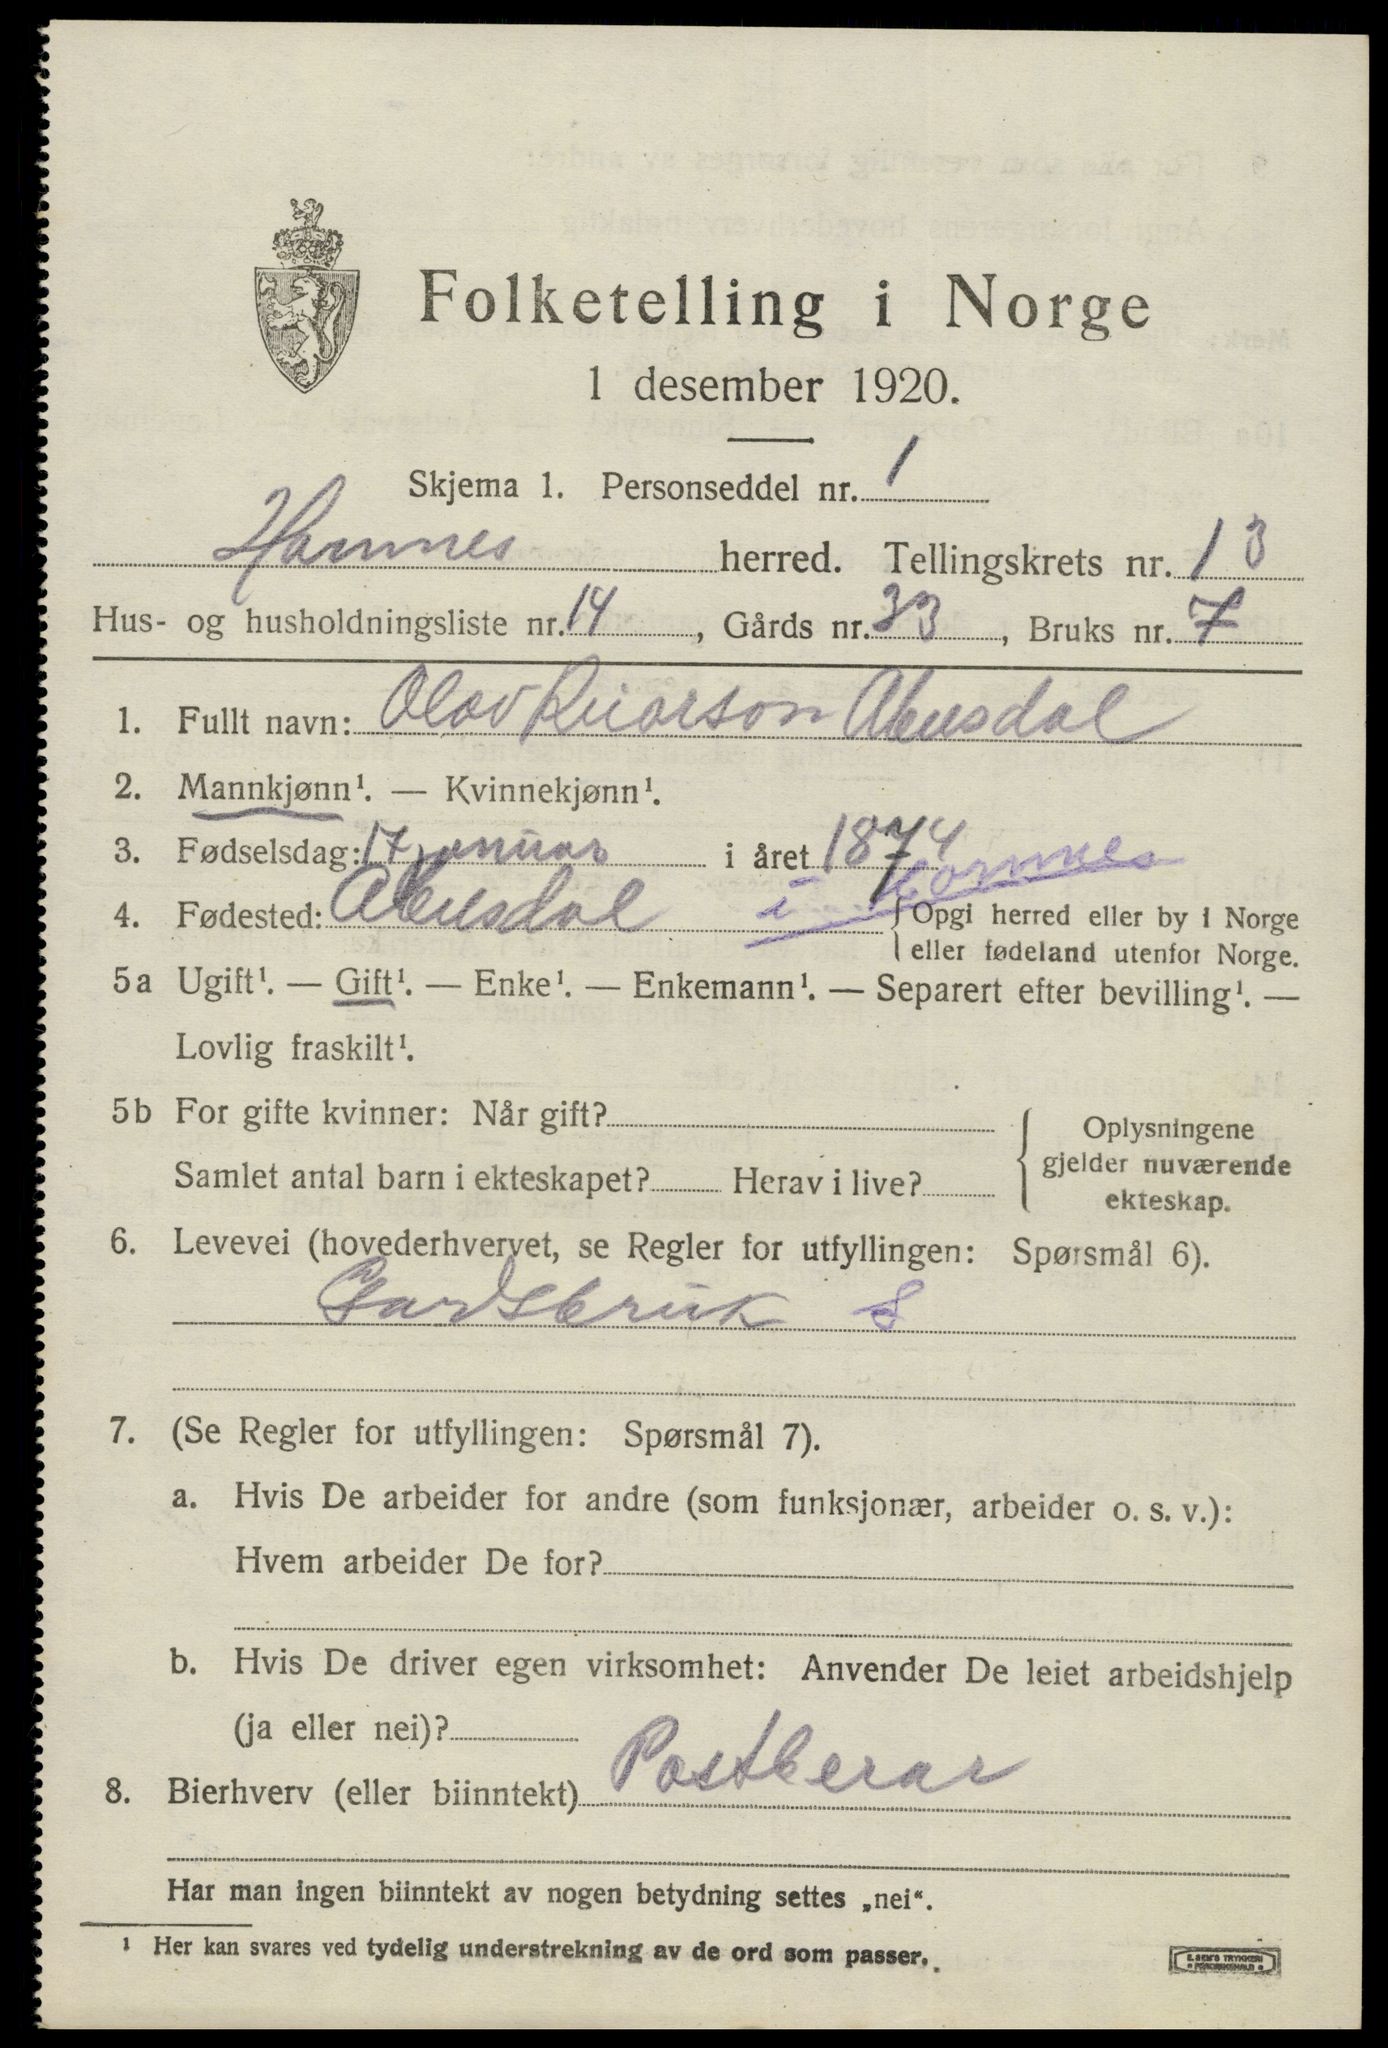 Folketelling i Norge
1 desember 1920.
Skjema 1. Personseddel nr. 1
Hornnes herred. Tellingskrets nr. 13
Hus- og husholdningsliste nr. 14, Gårds nr. 33, Bruks nr. 7
1. Fullt navn: Olav Abusdal
2. Mannkjønn¹. — Kvinnekjønn¹.
3. Fødselsdag: 17 januar i året 1874
4. Fødested: Abusdal i Hornnes { Opgi herred eller by i Norge
eller fødeland utenfor Norge.
5a Ugift¹. — Gift¹. — Enke¹. — Enkemann¹. — Separert efter bevilling¹. —
Lovlig fraskilt¹.
5b For gifte kvinner: Når gift?
Samlet antal barn i ekteskapet? Herav i live?
Oplysningene
gjelder nuværende
ekteskap.
6. Levevei (hovederhvervet, se Regler for utfyllingen: Spørsmål 6).
Gardsbruk S
7. (Se Regler for utfyllingen: Spørsmål 7).
a. Hvis De arbeider for andre (som funksjonær, arbeider o. s. v.):
Hvem arbeider De for?
b. Hvis De driver egen virksomhet: Anvender De leiet arbeidshjelp
(ja eller nei)?
8. Bierhverv (eller biinntekt) Postberar
Har man ingen biinntekt av nogen betydning settes „nei“.
¹ Her kan svares ved tydelig understrekning av de ord som passer.
E. SEM'S TRYKKERI
FREDRIKSHALD